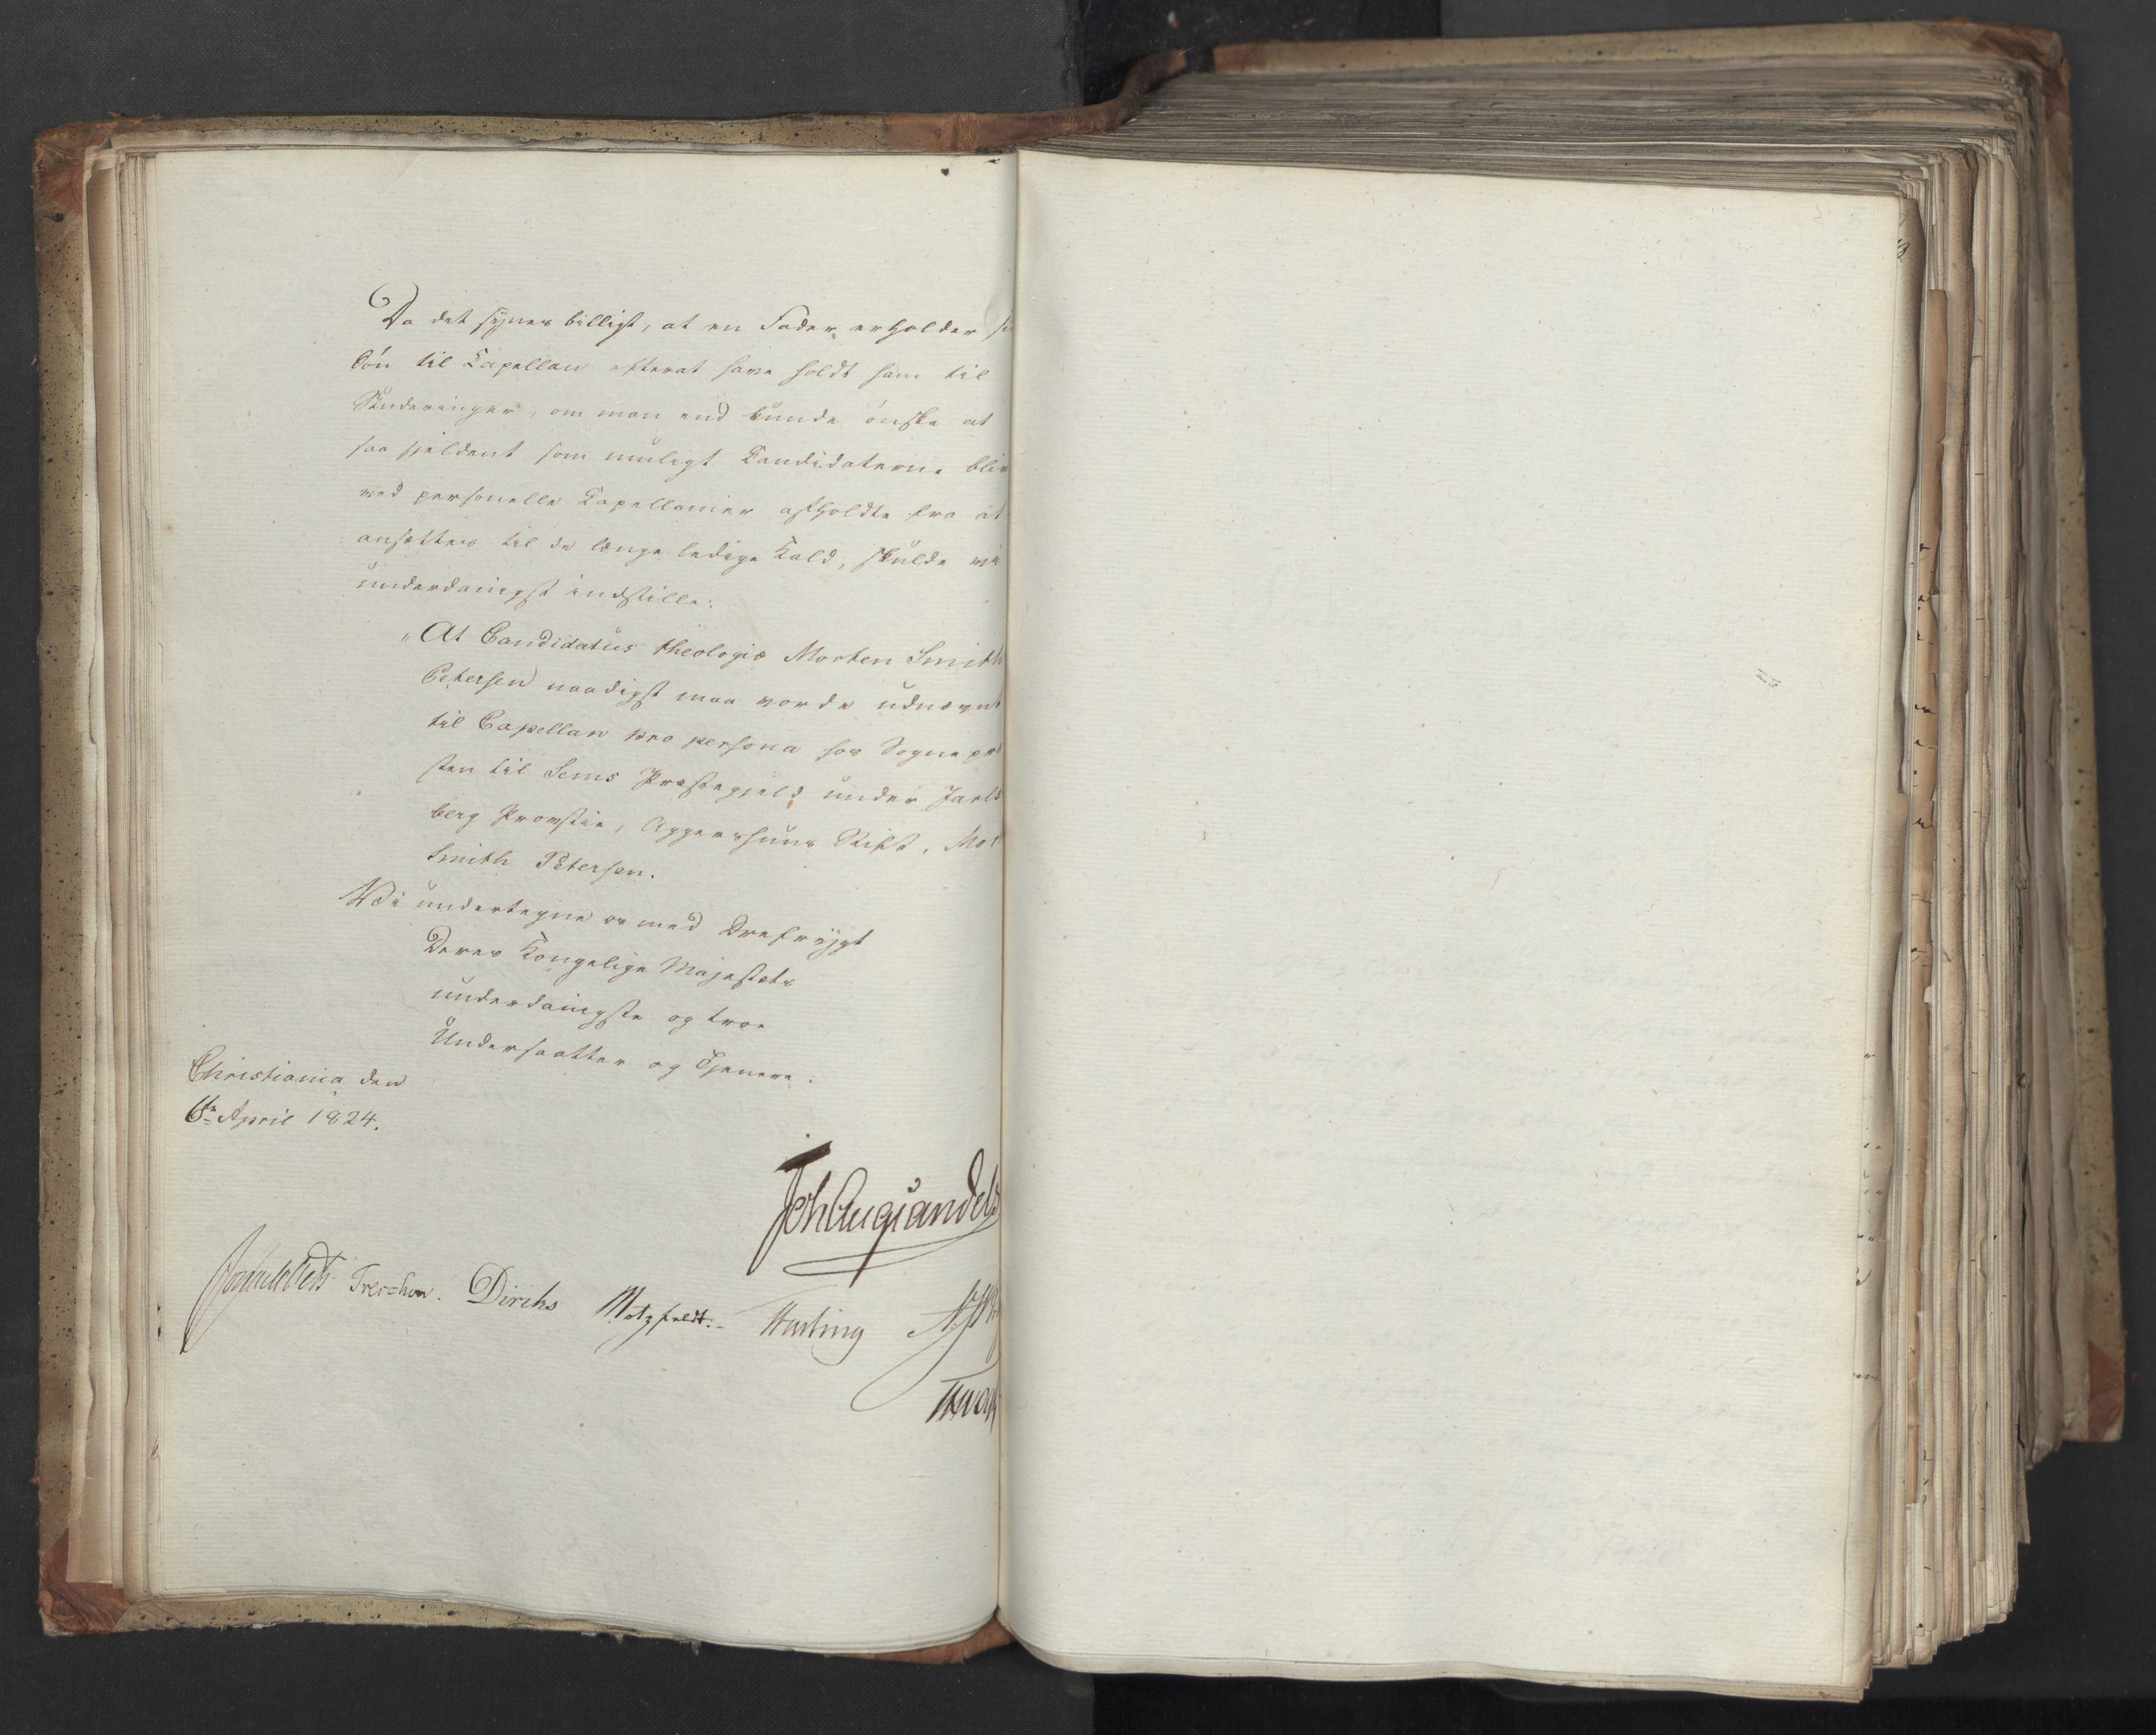 Da det synes billigt, at en Fader erholder si
Søn til Capellan efterat have holdt ham til
Studeringer, om man end kunde ønske at
saa sjeldent som muligt Candidaterne bliv
ved personelle Capellanier afholdte fra at
ansættes til de længe ledige Kald, skulde vi
underdanigst indstille:
"At Candidatus theologiæ Morten Smith
Petersen naadigst maa vorde udnævnt
til Capellan pro persona hos Sognepræ
sten til Sems Præstegjeld under Jarls
berg Provstie, Aggershuus Stift, Mor
Smith Petersen.
Vi undertegne os med Ærefrygt
Deres Kongelige Majestæts
underdanigste og troe
Undersaatter og Tjenere.
Christiania den
6te April 1824.
Joh Aug Sandels
Treschow. Diriks Motzfeldt.